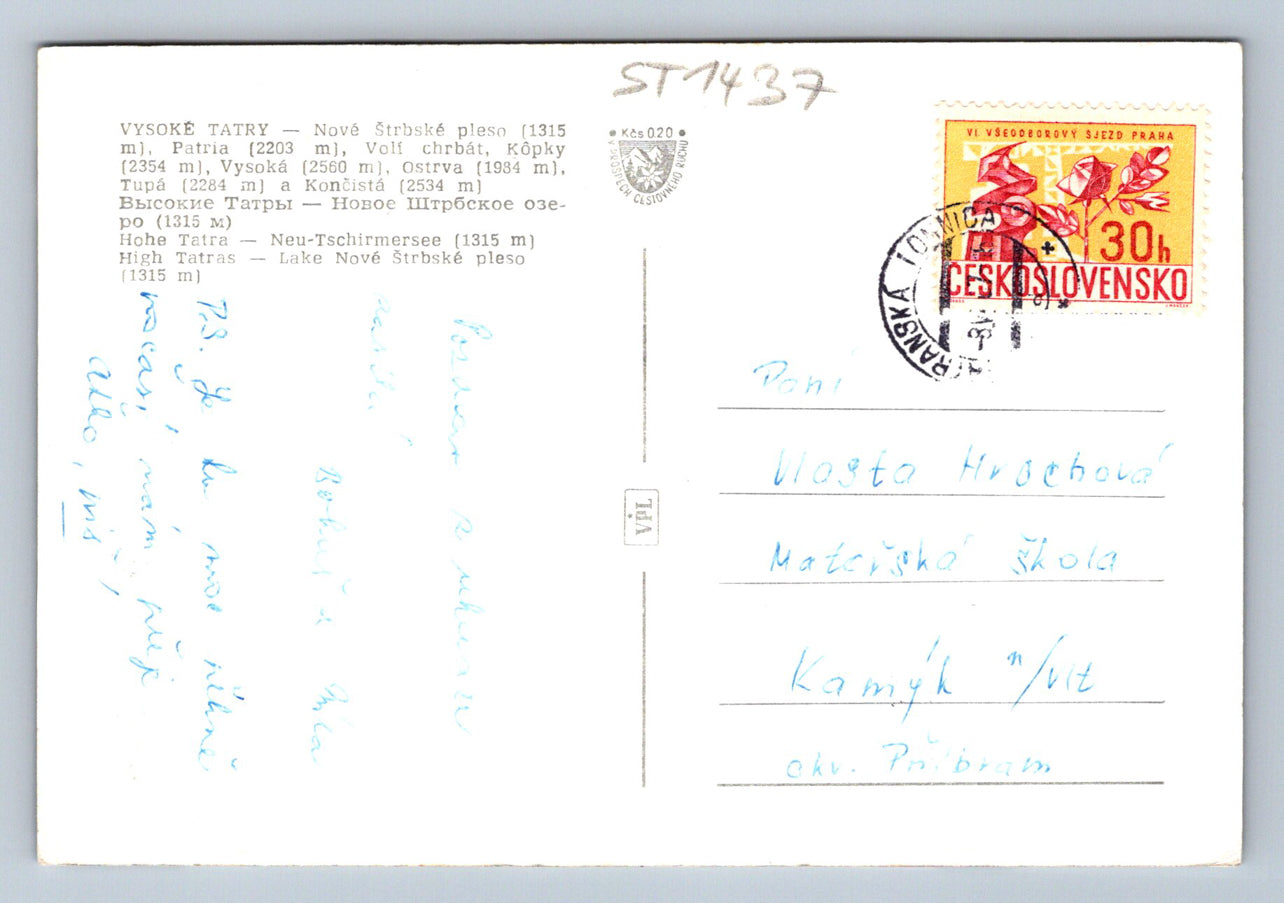 ST1437
VYSOKÉ TATRY — Nové Štrbské pleso (1315
m), Patria (2203 m), Volí chrbát, Kôpky
(2354 m), Vysoká (2560 m), Ostrva (1984 m),
Tupá (2284 m) a Končistá (2534 m)
Высокие Татры — Новое Штрбское озе-
ро (1315 м)
Hohe Tatra — Neu-Tschirmersee (1315 m)
High Tatras — Lake Nové Štrbské pleso
(1315 m)
Kčs 0.20
V PROSPECH CESTOVNÉHO RUCHU
VI. VŠEODBOROVÝ SJEZD PRAHA
30h
ČESKOSLOVENSKO
TATRANSKÁ LOMNICA
VPL
Paní
Vlasta Hrochová
Mateřská škola
Kamýk n/Vlt
okr. Příbram
Pozdrav z
zasílá
Bohuš a
P.S. Je tu moc
počasí, mám